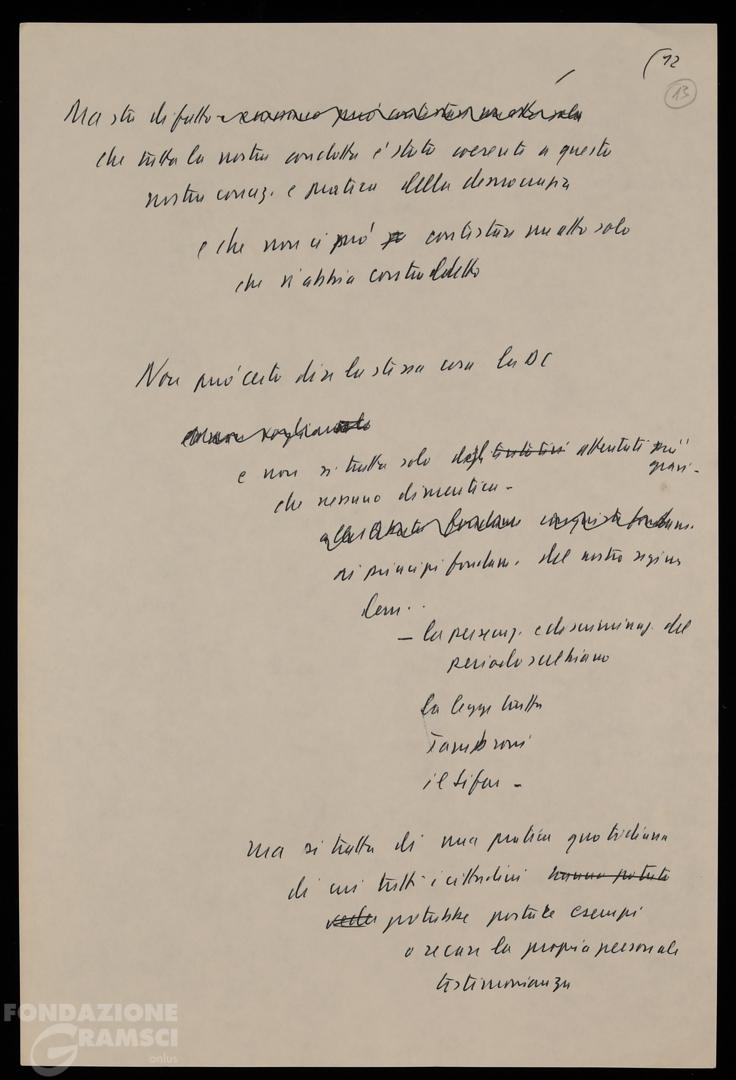 (12
13
Ma sta di fatto e nessuno può contestare un atto solo
che tutta la nostra condotta è stata coerente a questa
nostra concez. e pratica della democrazia
e che non ci può contestare un atto solo
che vi abbia contraddetto
Non può certo dire la stessa cosa la DC
e non si tratta solo degli attentati più
gravi -
che nessuno dimentica -
ai principi fondam. del nostro regime
dem..
- la persecuz. e discriminaz. del
periodo scelbiano
la legge truffa
Tambroni
il Sifar -
ma si tratta di una pratica quotidiana
di cui tutti i cittadini hanno potuto
potrebbe portare esempi
o recare la propria personale
testimonianza
FONDAZIONE
GRAMSCI
onlus